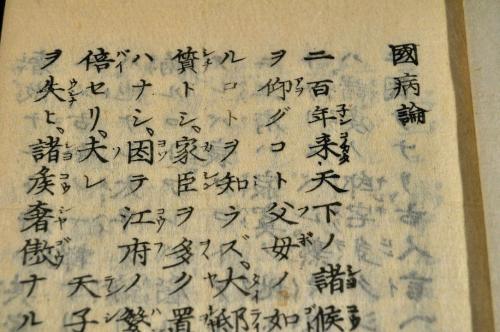 國病論
二百年来、天下ノ諸候
ヲ仰グコト父母ノ如
ルコトヲ知ラズ、大邸
質トシ、家臣ヲ多ク置
ハナシ。因テ江府ノ繁
倍セリ。夫レ 天子
ヲ失ヒ、諸侯奢傲ナル